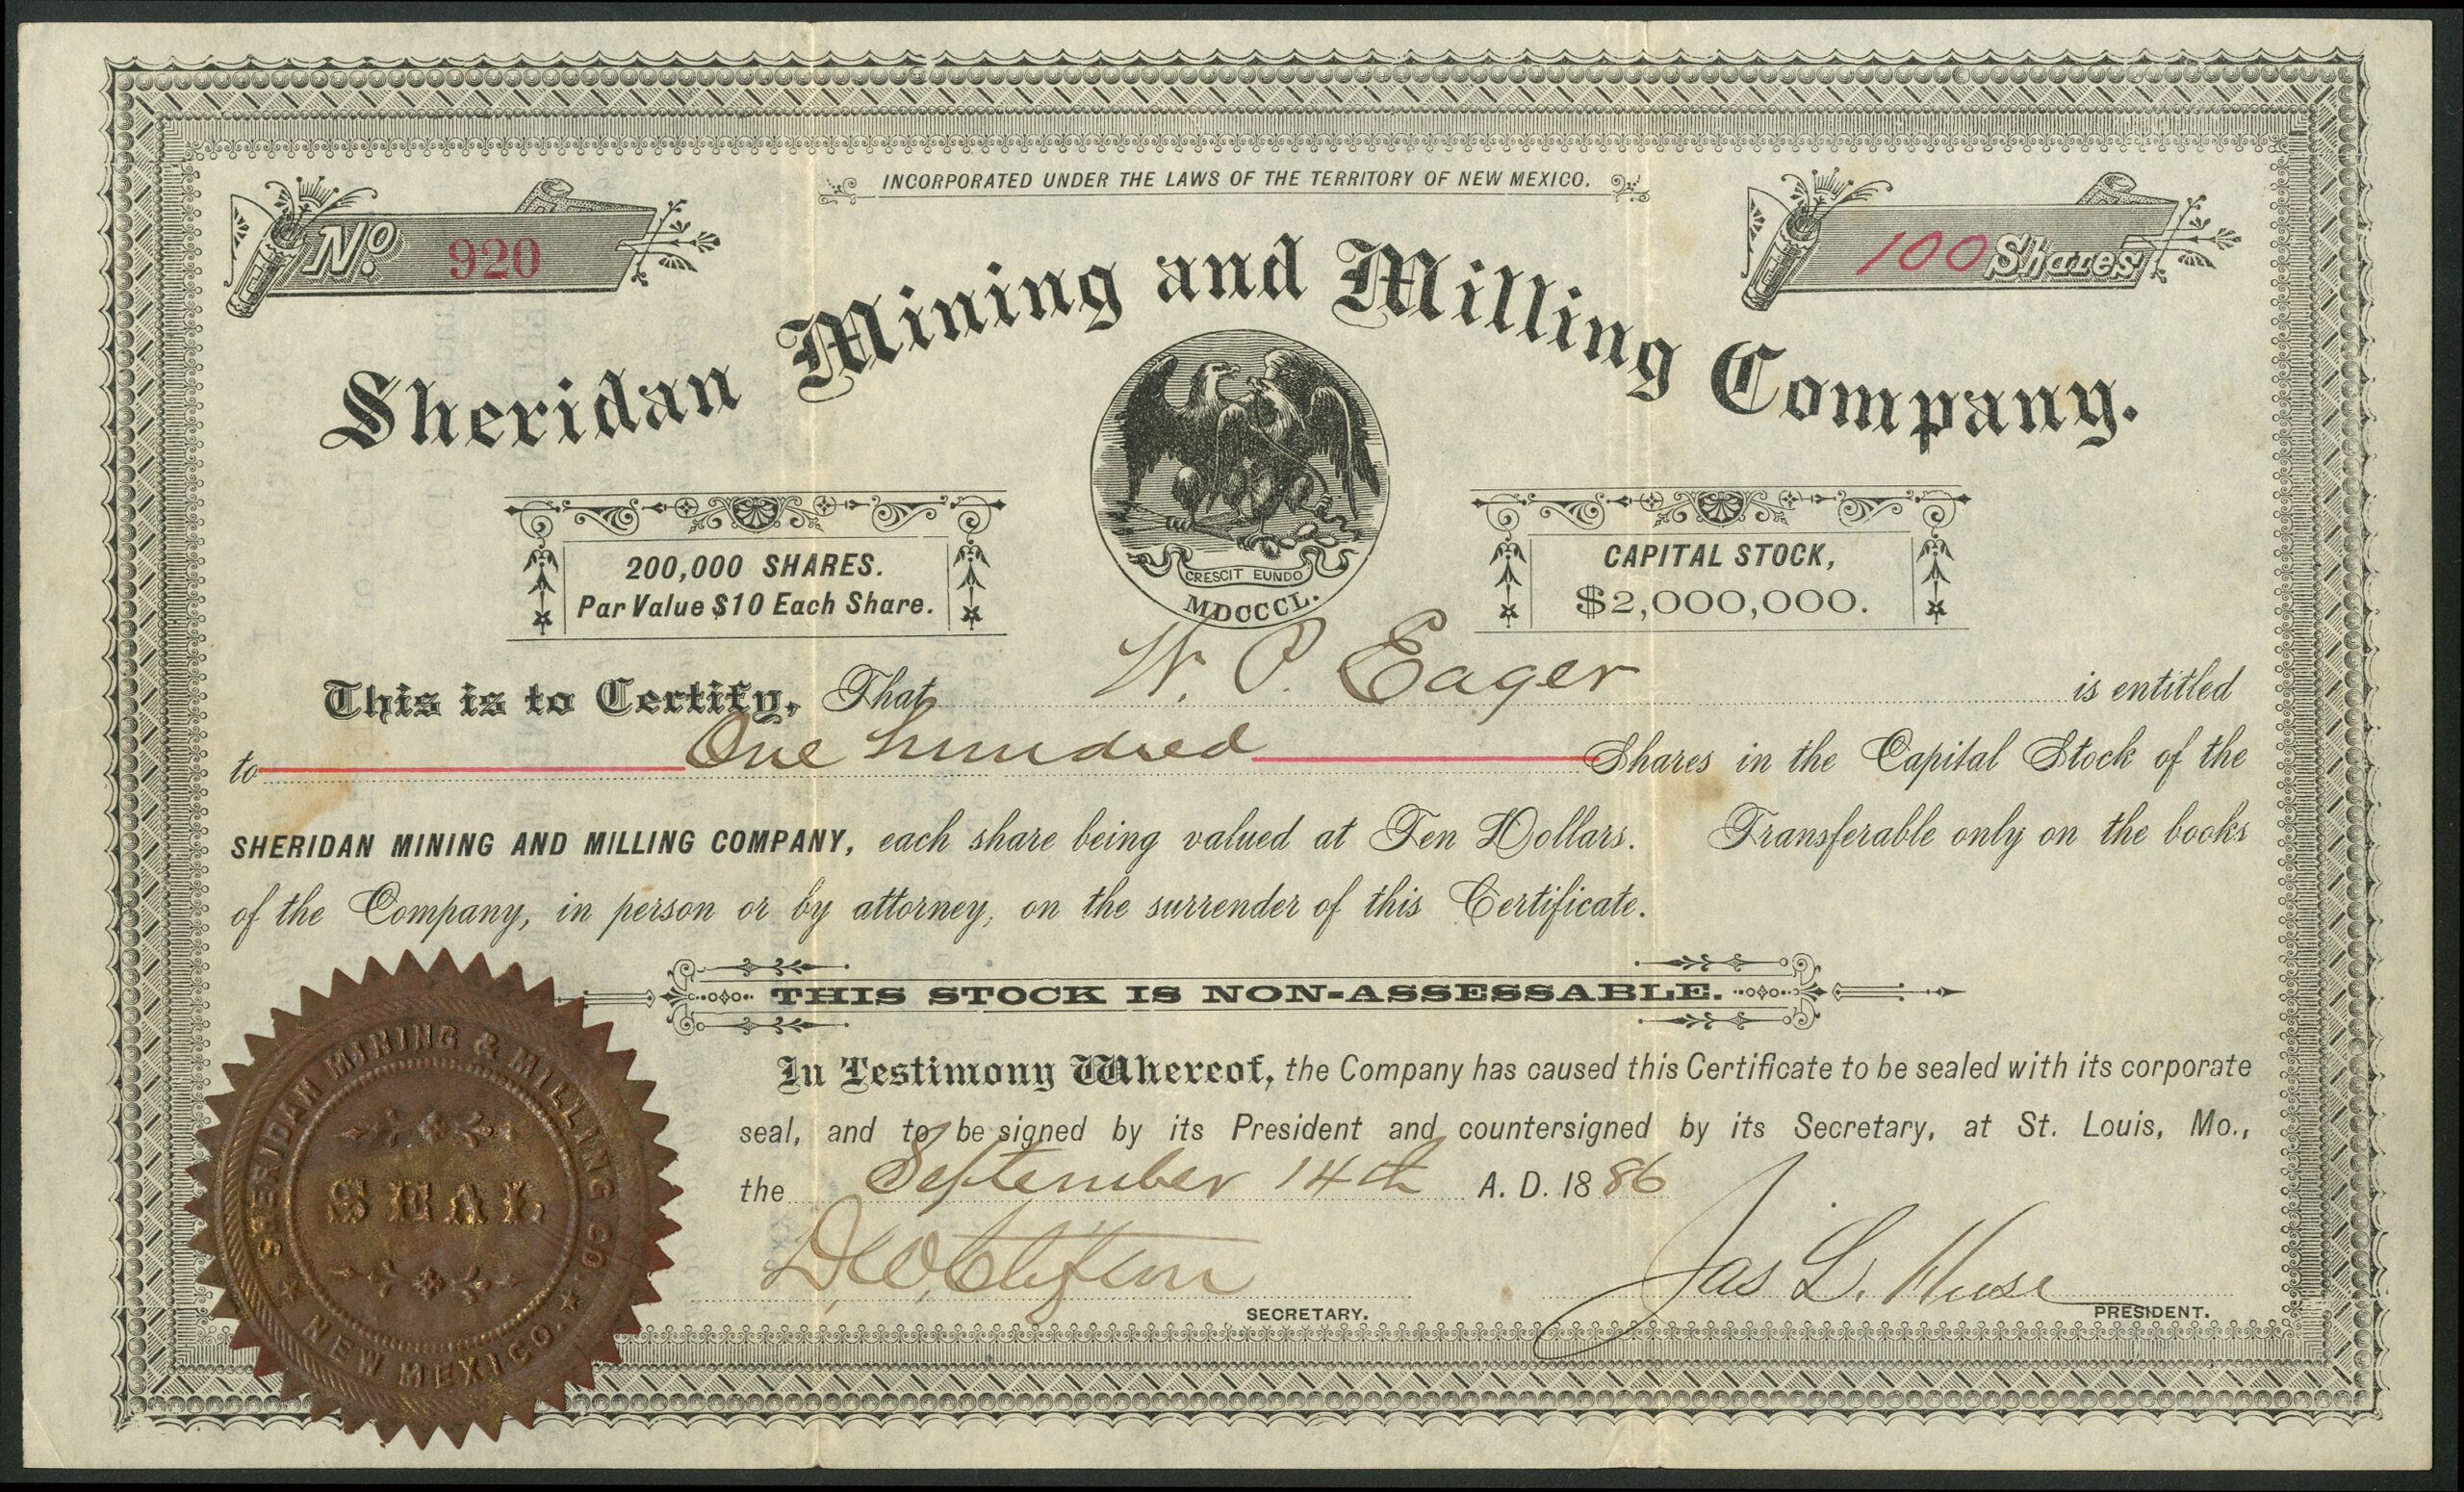 INCORPORATED UNDER THE LAWS OF THE TERRITORY OF NEW MEXICO.
No. 920
100 Shares
Sheridan Mining and Milling Company.
200,000 SHARES.
Par Value $10 Each Share.
CRESCIT EUNDO
MDCCCL.
CAPITAL STOCK,
$2,000,000.
This is to Certify, That W. P. Eager is entitled
to One hundred Shares in the Capital Stock of the
SHERIDAN MINING AND MILLING COMPANY, each share being valued at Ten Dollars. Transferable only on the books
of the Company, in person or by attorney, on the surrender of this Certificate.
THIS STOCK IS NON-ASSESSABLE.
In Testimony Whereof, the Company has caused this Certificate to be sealed with its corporate
seal, and to be signed by its President and countersigned by its Secretary, at St. Louis, Mo.,
the September 14th A. D. 1886
SHERIDAN MINING & MILLING CO
SEAL
NEW MEXICO.
Clifton
SECRETARY.
Jas L. Huse
PRESIDENT.